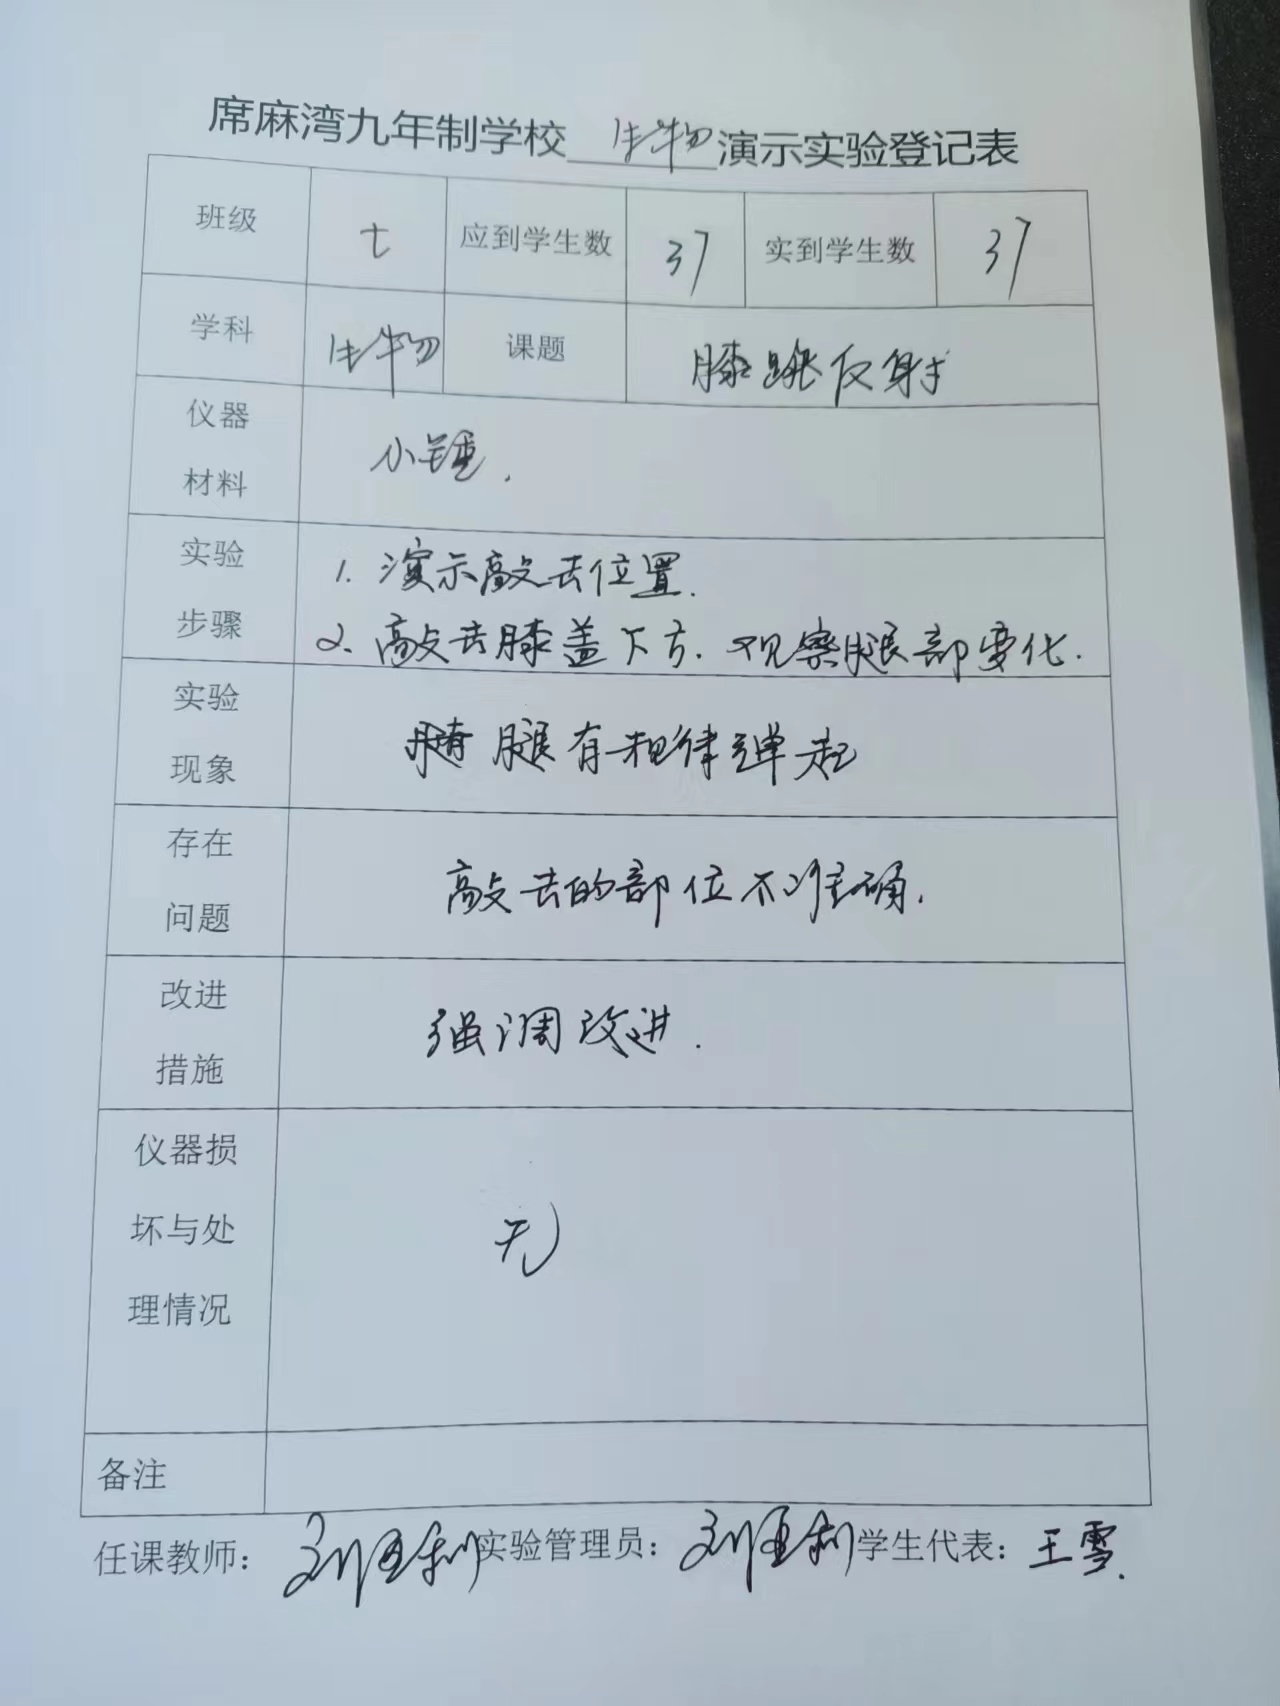 席麻湾九年制学校 生物 演示实验登记表
班级 七 应到学生数 37 实到学生数 37
学科 生物 课题 膝跳反射
仪器
材料
小锤.
实验
步骤
1. 演示敲击位置.
2. 敲击膝盖下方. 观察腿部变化.
实验
现象
腿有规律弹起
存在
问题
敲击的部位不准确.
改进
措施
强调改进.
仪器损
坏与处
理情况
无
备注
任课教师: 刘 实验管理员: 刘 学生代表: 王雪.